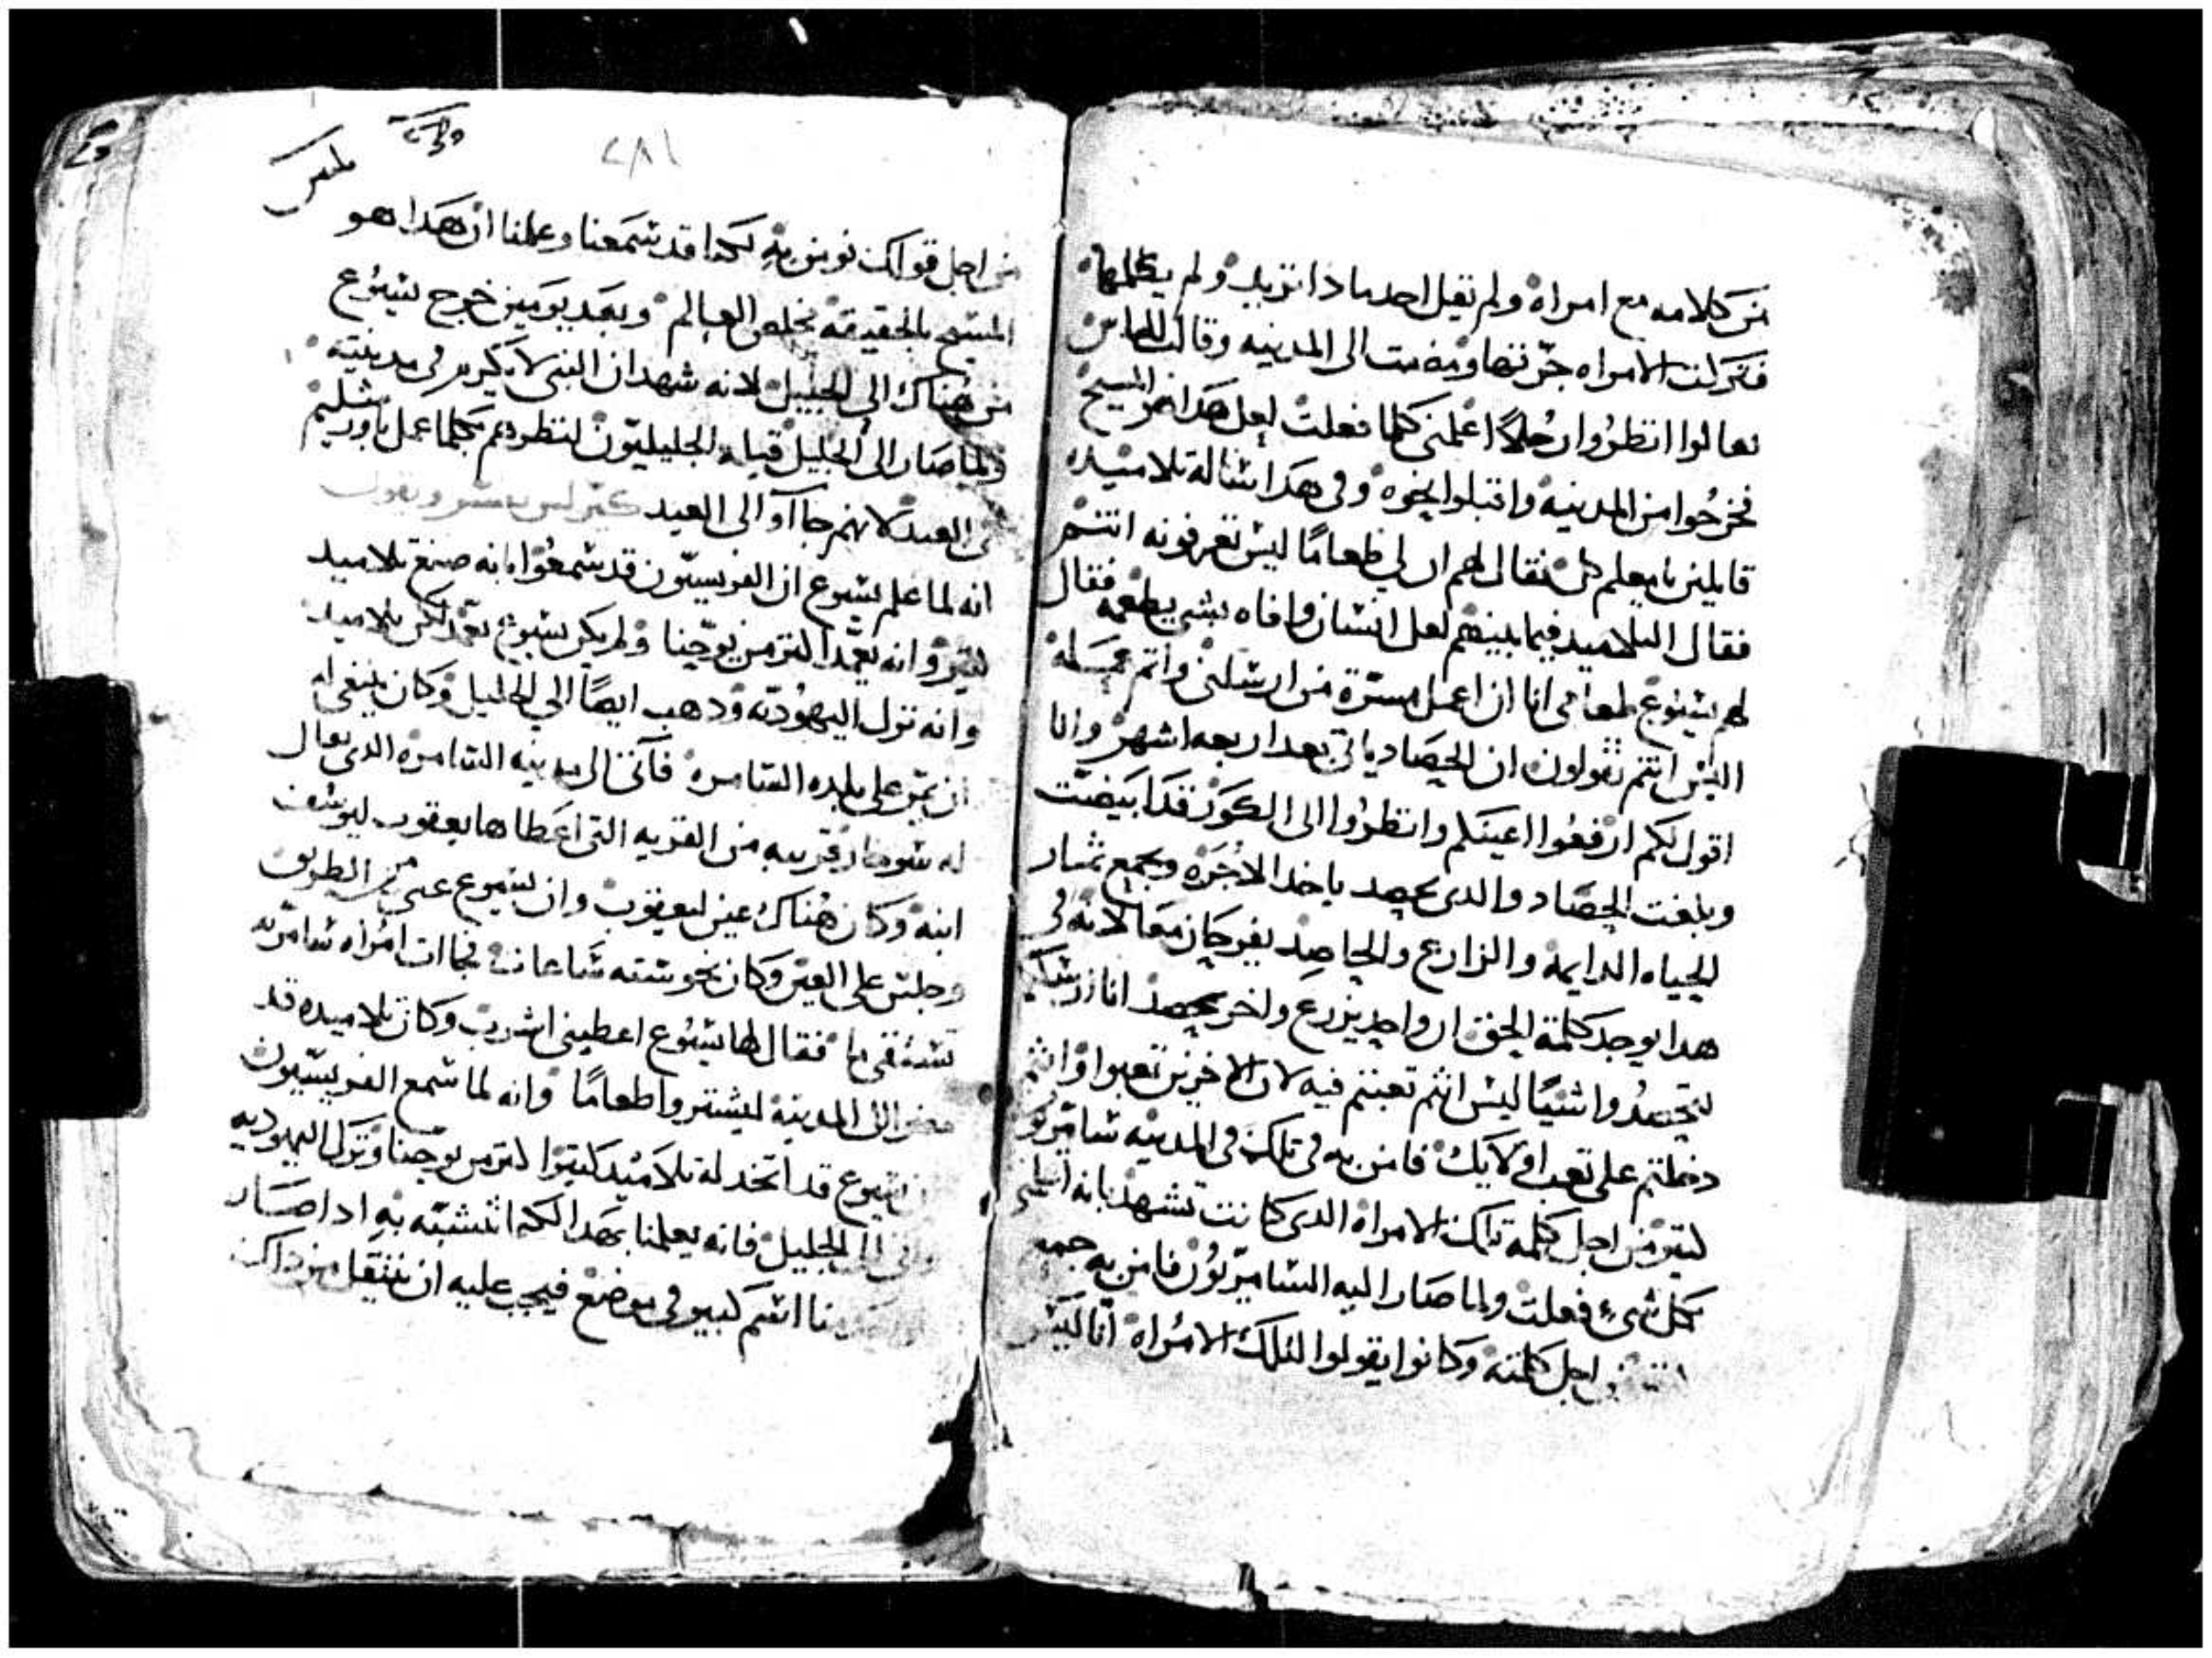 من كلامه مع امراه ولم تقيل احد ماذا تريد ولم يكلمها
فتركت الامراه جرتها ومضت الى المدينه وقالت للناس
تعالوا انظروا رجلاً اعلمني كلما فعلت لعل هدا هو المسيح
فخرجوا من المدينة واقبلوا نحوه وفي هدا سٔاله تلاميده
قايلين يا معلم كل فقال لهم ان لي طعامًا ليس تعرفونه انتم
فقال التلاميد فيما بينهم لعل انسان وافاه بشي يطعمه فقال
لهم يسوع طعامي انا ان اعمل مسرة من ارسلني واتم عمله
اليس انتم تقولون ان الحصاد ياتي بعد اربعه اشهر وانا
اقول لكم ارفعوا اعينكم وانظروا الى الكور قد ابيضت
وبلغت الحصاد والدى يحصد ياخد الاجره ويجمع ثمار
الحياه الدايمه والزارع والحاصد يفرحان معا لانه في
هدا يوجد كلمة الحق ان واحد يزرع واخر يحصد انا ارسلتكم
لتحصدوا شيًا ليس انتم تعبتم فيه لان الاخرين تعبوا وانتم
دخلتم على تعب اوليك فامن به في تلك في المدينه سامريون
كتير من اجل كلمة تلك الامراه الدى كانت تشهد بانه اعلمني
بكل شيء فعلت ولما صار اليه السامريون فامن به جمع
من اجل كلمته وكانوا يقولوا لتلك الامراه انا ليس
٢٨١
من اجل قولك نومن به لكنا قد سمعنا وعلمنا ان هدا هو
المسيح بالحقيقه مخلص العالم وبعد يومين خرج يسوع
من هناك الى الجليل لانه شهد ان النبي لا يكرم في مدينته
ولما صار الى الجليل قبله الجليليون لنظرهم كلما عمل باورشليم
في العيد لانهم جاآو الى العيد
انه لما علم يسوع ان الفريسيون قد سمعوا بانه صنع تلاميد
كتير وانه يعمد اكتر من يوحنا ولم يكن يسوع يعمد لكن تلاميده
وانه نزل اليهوديه ودهب ايضًا الي الجليل وكان ينبغي له
ان يمر على بلده السامره فآتى الى مدينه السامره الدى يقال
له سوخار قريبه من القريه التى اعطاها يعقوب ليوسف
ابنه وكان هناك عين ليعقوب وان يسوع عيي من الطريق
وجلس على العين وكان نحو سته ساعات فجاات امراه سامريه
تستقي ما فقال لها يسوع اعطيني اشرب وكان تلاميده قد
مضوا الى المدينه ليشتروا طعامًا وانه لما سمع الفريسيون
ان يسوع قد اتخد له تلاميد كتيرا اكتر من يوحنا ونزل اليهوديه
الى الجليل فانه يعلمنا بهدا لكيما نتشبه به ادا صار
اسم كبير في موضع فيجب عليه ان ينتقل من داك